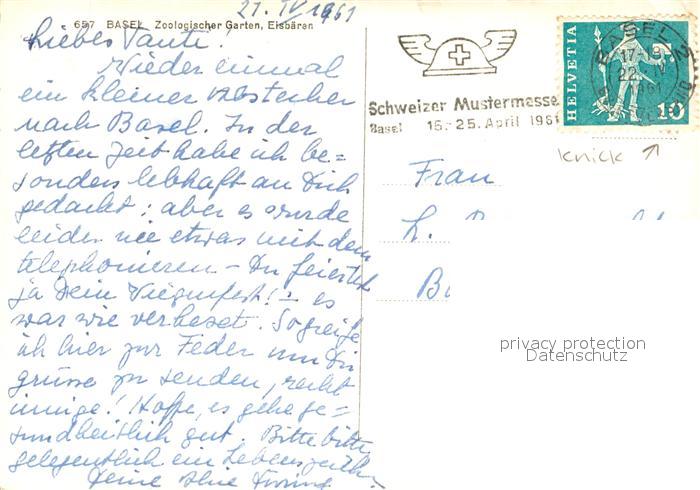 21. IV 1961
657 BASEL Zoologischer Garten, Eisbären
Liebes Tanti!
Wieder einmal
ein kleiner Abstecher
nach Basel. In der
letzten Zeit habe ich be=
sonders lebhaft an Dich
gedacht; aber es wurde
leider nie etwas mit dem
telephonieren – Du feiertest
ja Dein Wiegenfest! – es
war wie verhext. So greife
ich hier zur Feder um Dir
grüsse zu senden, recht
innige! Hoffe, es gehe ge=
sundheitlich gut. Bitte bitte
gelegentlich ein Lebenszeichen.
Deine
Schweizer Mustermesse
Basel 15.-25. April 1961
BASEL 2
17
22. IV
1961
HELVETIA
10
Knick ↗
Frau
L.
privacy protection
Datenschutz